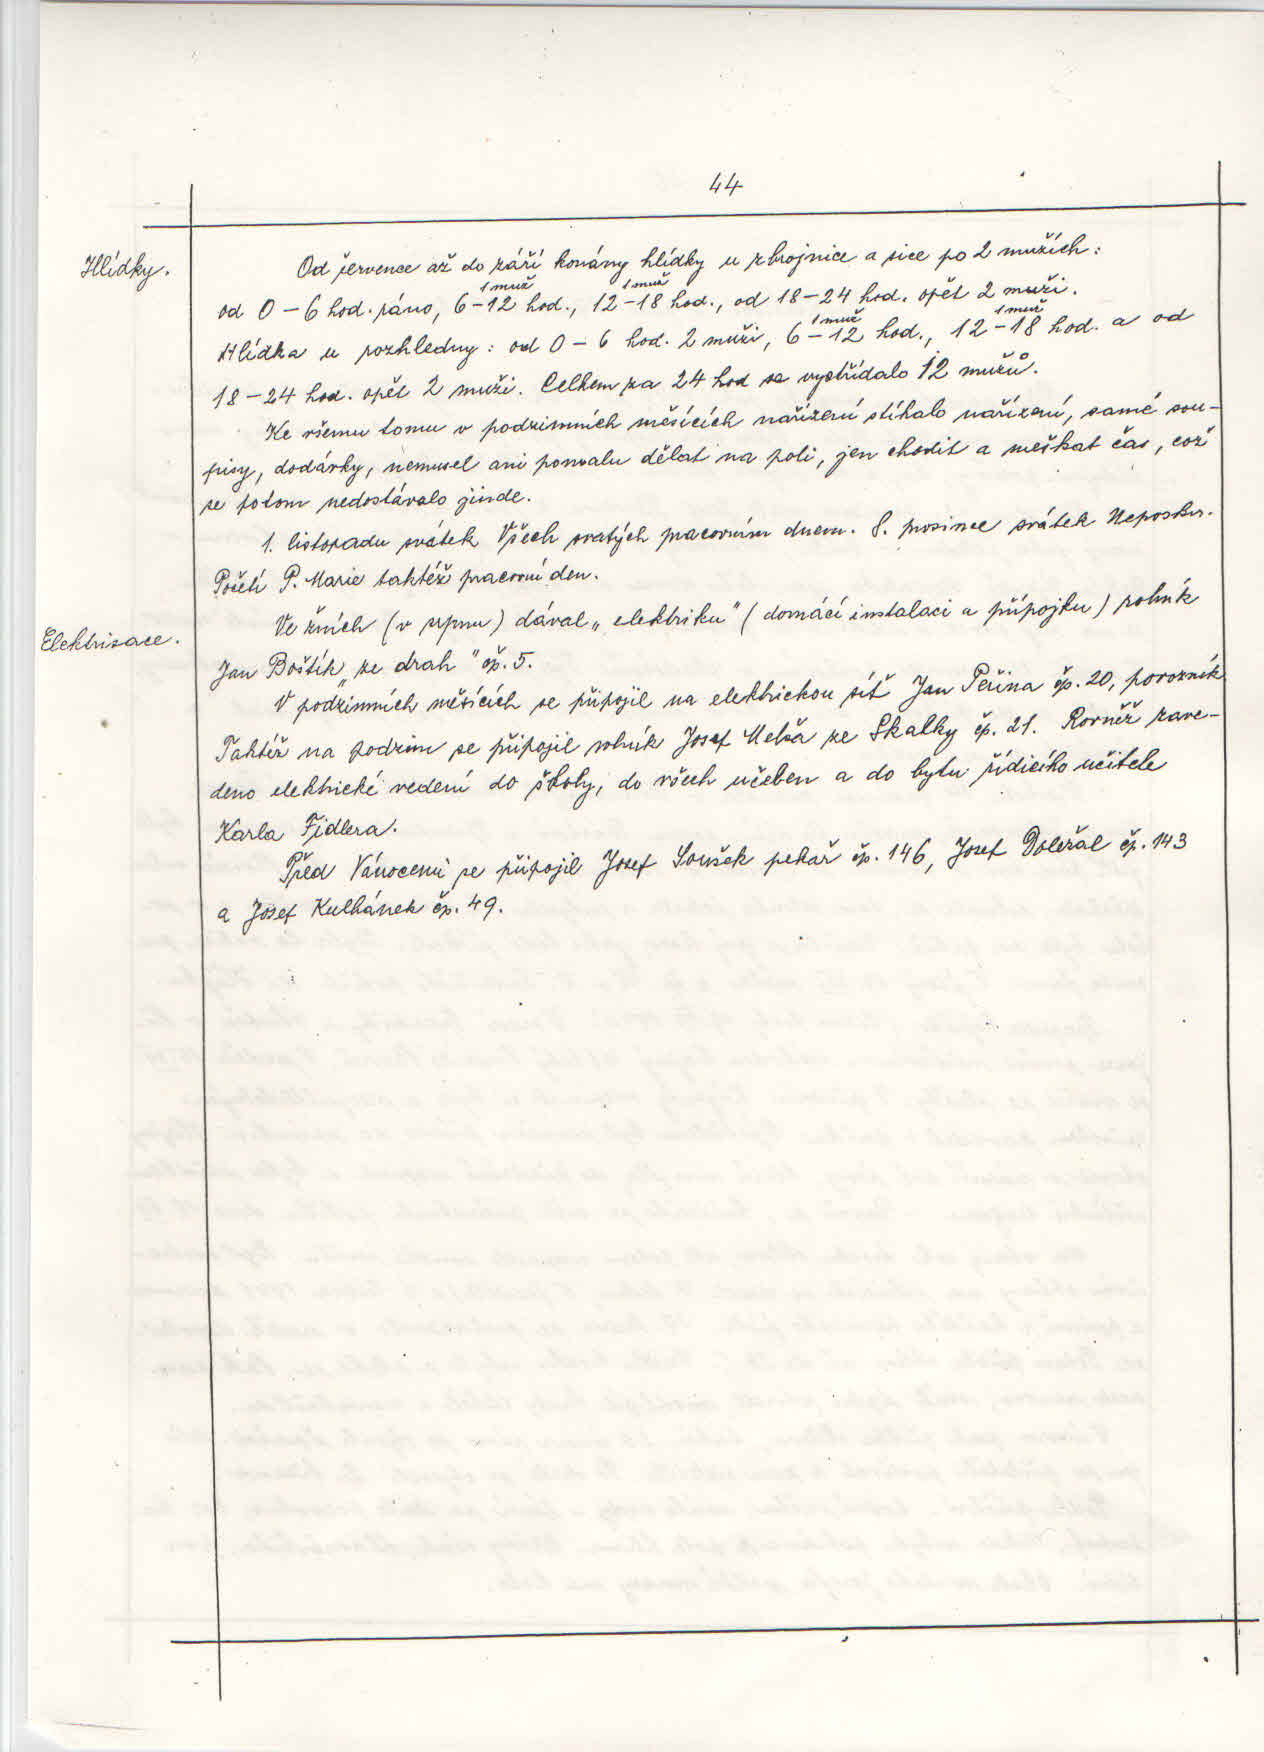 44
Hlídky.
Od července až do září konány hlídky u zbrojnice a sice po 2 mužích:
1 muž 1 muž
od 0 – 6 hod. ráno, 6 – 12 hod., 12 – 18 hod., od 18 – 24 hod. opět 2 muži.
1 muž 1 muž
Hlídka u rozhledny: od 0 – 6 hod. 2 muži, 6 – 12 hod., 12 – 18 hod. a od
18 – 24 hod. opět 2 muži. Celkem za 24 hod se vystřídalo 12 mužů.
Ke všemu tomu v podzimních měsících nařízení stíhalo nařízení, samé sou-
pisy, dodávky, nemusel ani pomalu dělat na poli, jen chodit a meškat čas, což
se potom nedostávalo jinde.
1. listopadu svátek Všech svatých pracovním dnem. 8. prosince svátek Neposkv.
Početí P. Marie taktéž pracovní den.
Elektrisace.
Ve žních (v srpnu) dával „elektriku" (domácí instalaci a přípojku) rolník
Jan Boštík „ze drah" čp. 5.
V podzimních měsících se připojil na elektrickou síť Jan Peřina čp. 20, povozník
Taktéž na podzim se připojil rolník Josef Melša ze Skalky čp. 21. Rovněž zave-
deno elektrické vedení do školy, do všech učeben a do bytu řídicího učitele
Karla Fidlera.
Před Vánocemi se připojil Josef Soušek pekař čp. 146, Josef Doležal čp. 143
a Josef Kulhánek čp. 49.